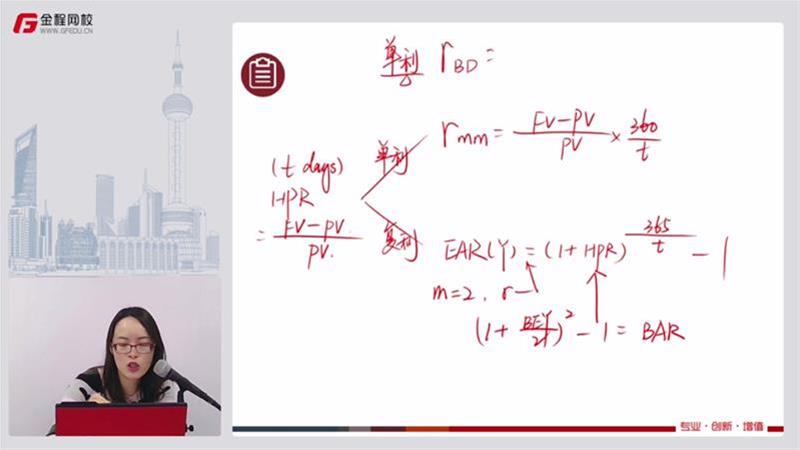 金程网校
WWW.GFEDU.CN
单利 r_BD =
单利 r_mm = FV-PV/PV × 360/t
(t days)
HPR
= FV-PV/PV.
复利 EAR(Y) = (1+HPR)^365/t - 1
m=2, r
(1+BEY/2)^2 - 1 = BAR
专业·创新·增值